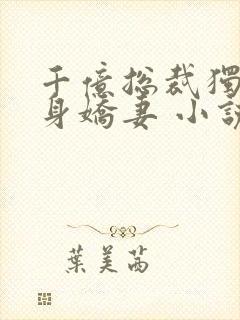 千億总裁獨
身嬌妻 小說
葉美茜